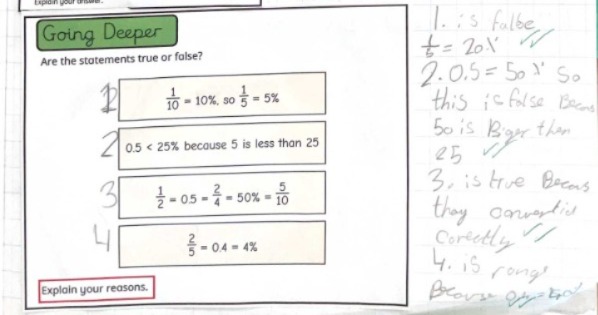 Explain your answer.
Going Deeper
Are the statements true or false?
1
1/10 = 10%, so 1/5 = 5%
2
0.5 < 25% because 5 is less than 25
3
1/2 = 0.5 = 2/4 = 50% = 5/10
4
2/5 = 0.4 = 4%
Explain your reasons.
1. is false
1/5 = 20%
2. 0.5 = 50% So
this is false Becaus
50 is Biger then
25
3. is true Becaus
they
Corectly
4. is
Because